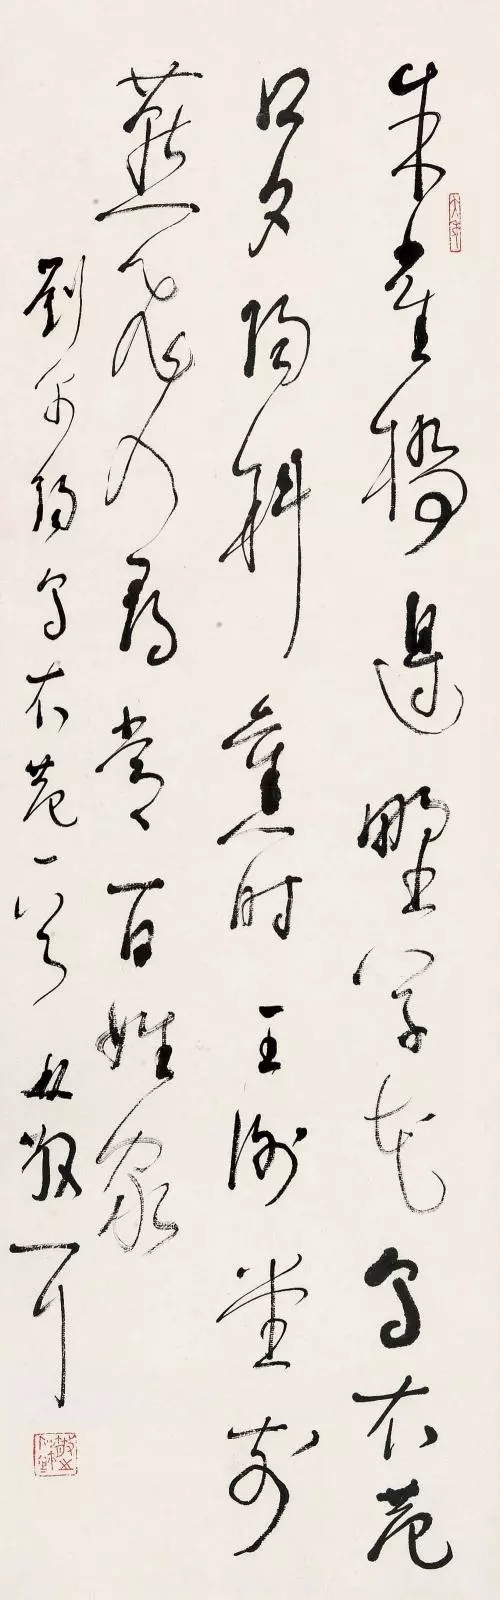 朱雀橋邊野草花烏衣巷
口夕陽斜舊時王謝堂前
燕飛入尋常百姓家
劉禹錫烏衣巷一首 林散耳